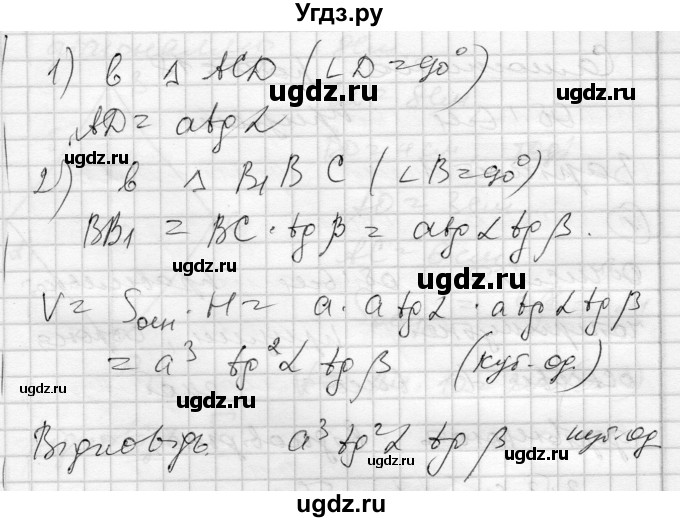 Угдз.ру
1) в △ ACD (∠D = 90°)
ugdz.ru
AD = a tg α
ugdz.ru
2) в △ B₁BC (∠B = 90°)
BB₁ = BC · tg β = a tg α tg β.
ugdz.ru
ugdz.ru
V = Sосн · H = a · a tg α · a tg α tg β
= a³ tg² α tg β (куб. од.)
ugdz.ru
ugdz.ru
Відповідь a³ tg² α tg β куб. од
ugdz.ru
ugdz.ru
ugdz.ru